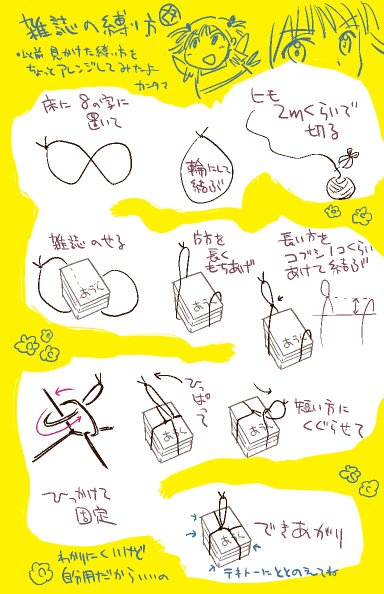 雑誌の縛り方
・以前 見かけた縛り方を
ちょっとアレンジしてみたよ
カンタで
ヒモ
2mくらいで
切る
輪にして
結ぶ
床に 8の字に
置いて
雑誌 のせる
あうん
片方を
長く
もちあげ
あうん
長い方を
コブシ1コくらい
あけて 結ぶ
あうん
ひっかけて
固定
ひっぱって
あうん
短い方に
くぐらせて
あうん
できあがり
あうん
テキトーにととのえてね
わかりにくいけど
自分用だからいいの